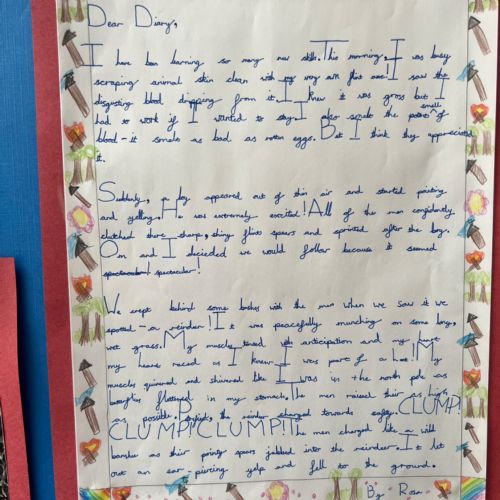 Dear Diary,
I have ben learning so many new skills. This morning, I was busy
scraping animal skin clean with my very own flint axe. I saw the
disgusting blood dripping from it. I knew it was gross but I
had to work if I wanted to stay. I also smelt the small of
blood - it smells as bad as rotten eggs. But I think they appreciated
it.
Suddenly, a boy appeared out of thin air and started pointing
and yelling. He was extremely excited! All of the men confidently
clutched there sharp, shiny flint spears and sprinted after the boy.
Om and I decieded we would follow because it seemed
spectacular!
We crept behind some bushes with the men when we saw it we
spotted - a reindeer! It was peacefully munching on some long,
wet grass. My muscles tensed with anticipation and my
my heart raced as I knew I was part of a hunt! My
muscles quivered and shivered like I was in the north pole as
butterflies fluttered in my stomach. The men raised their as high
as possible. the reindeer charged towards CLUMP!
CLUMP! CLUMP! The men charged like a wild
banshee as their pointy spears jabbed into the reindeer. It let
out an ear-piercing yelp and fell to the ground.
By